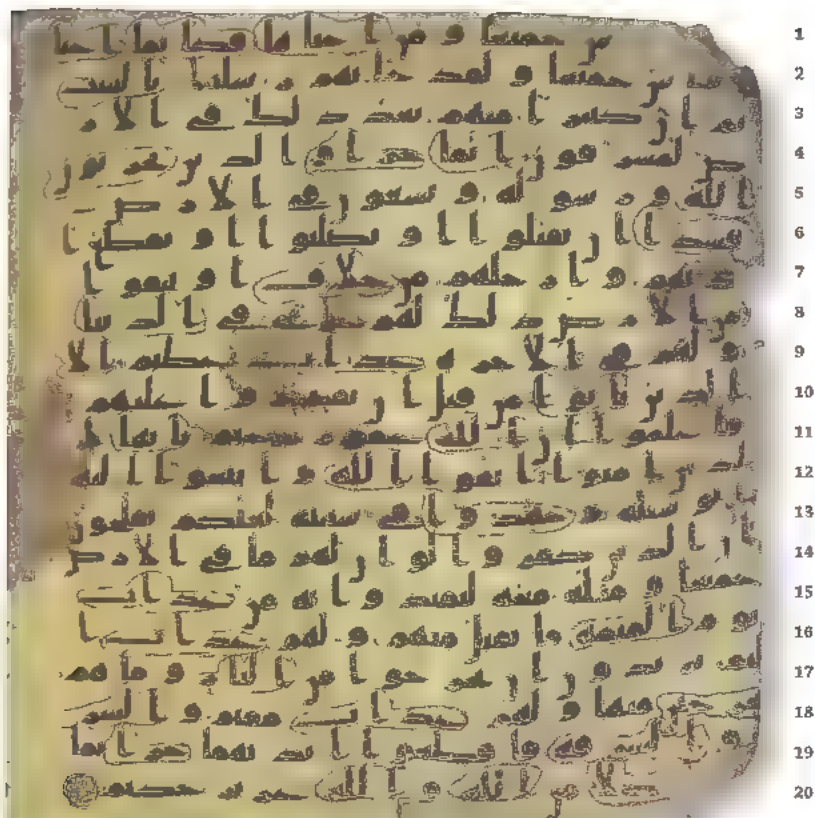 1 س جميعا و من احياها فكانما احيا
2 الناس جميعا و لقد جاتهم رسلنا بالبينت
3 ثم ان كثيرا منهم بعد ذلك في الار
4 ض لمسرفون انما جزاو الذين يحربون
5 الله و رسوله و يسعون في الارض
6 فسدا ان يقتلوا او يصلبوا او تقطع ا
7 يديهم و ارجلهم من خلاف او ينفوا
8 من الارض ذلك لهم خزي في الدنيا
9 و لهم في الاخرة عذاب عظيم الا
10 الذين تابوا من قبل ان تقدروا عليهم
11 فاعلموا ان الله غفور رحيم يايها ا
12 لذين امنوا اتقوا الله و ابتغوا اليه
13 الوسيلة و جهدوا في سبيله لعلكم تفلحون
14 ان الذين كفروا لو ان لهم ما في الارض
15 جميعا و مثله معه ليفتدوا به من عذاب
16 يوم القيمة ما تقبل منهم و لهم عذاب ا
17 ليم يريدون ان يخرجوا من النار و ما هم
18 بخرجين منها و لهم عذاب مقيم و السر
19 ق و السرقة فاقطعوا ايديهما جزا بما
20 نكلا من الله و الله عزيز حكيم